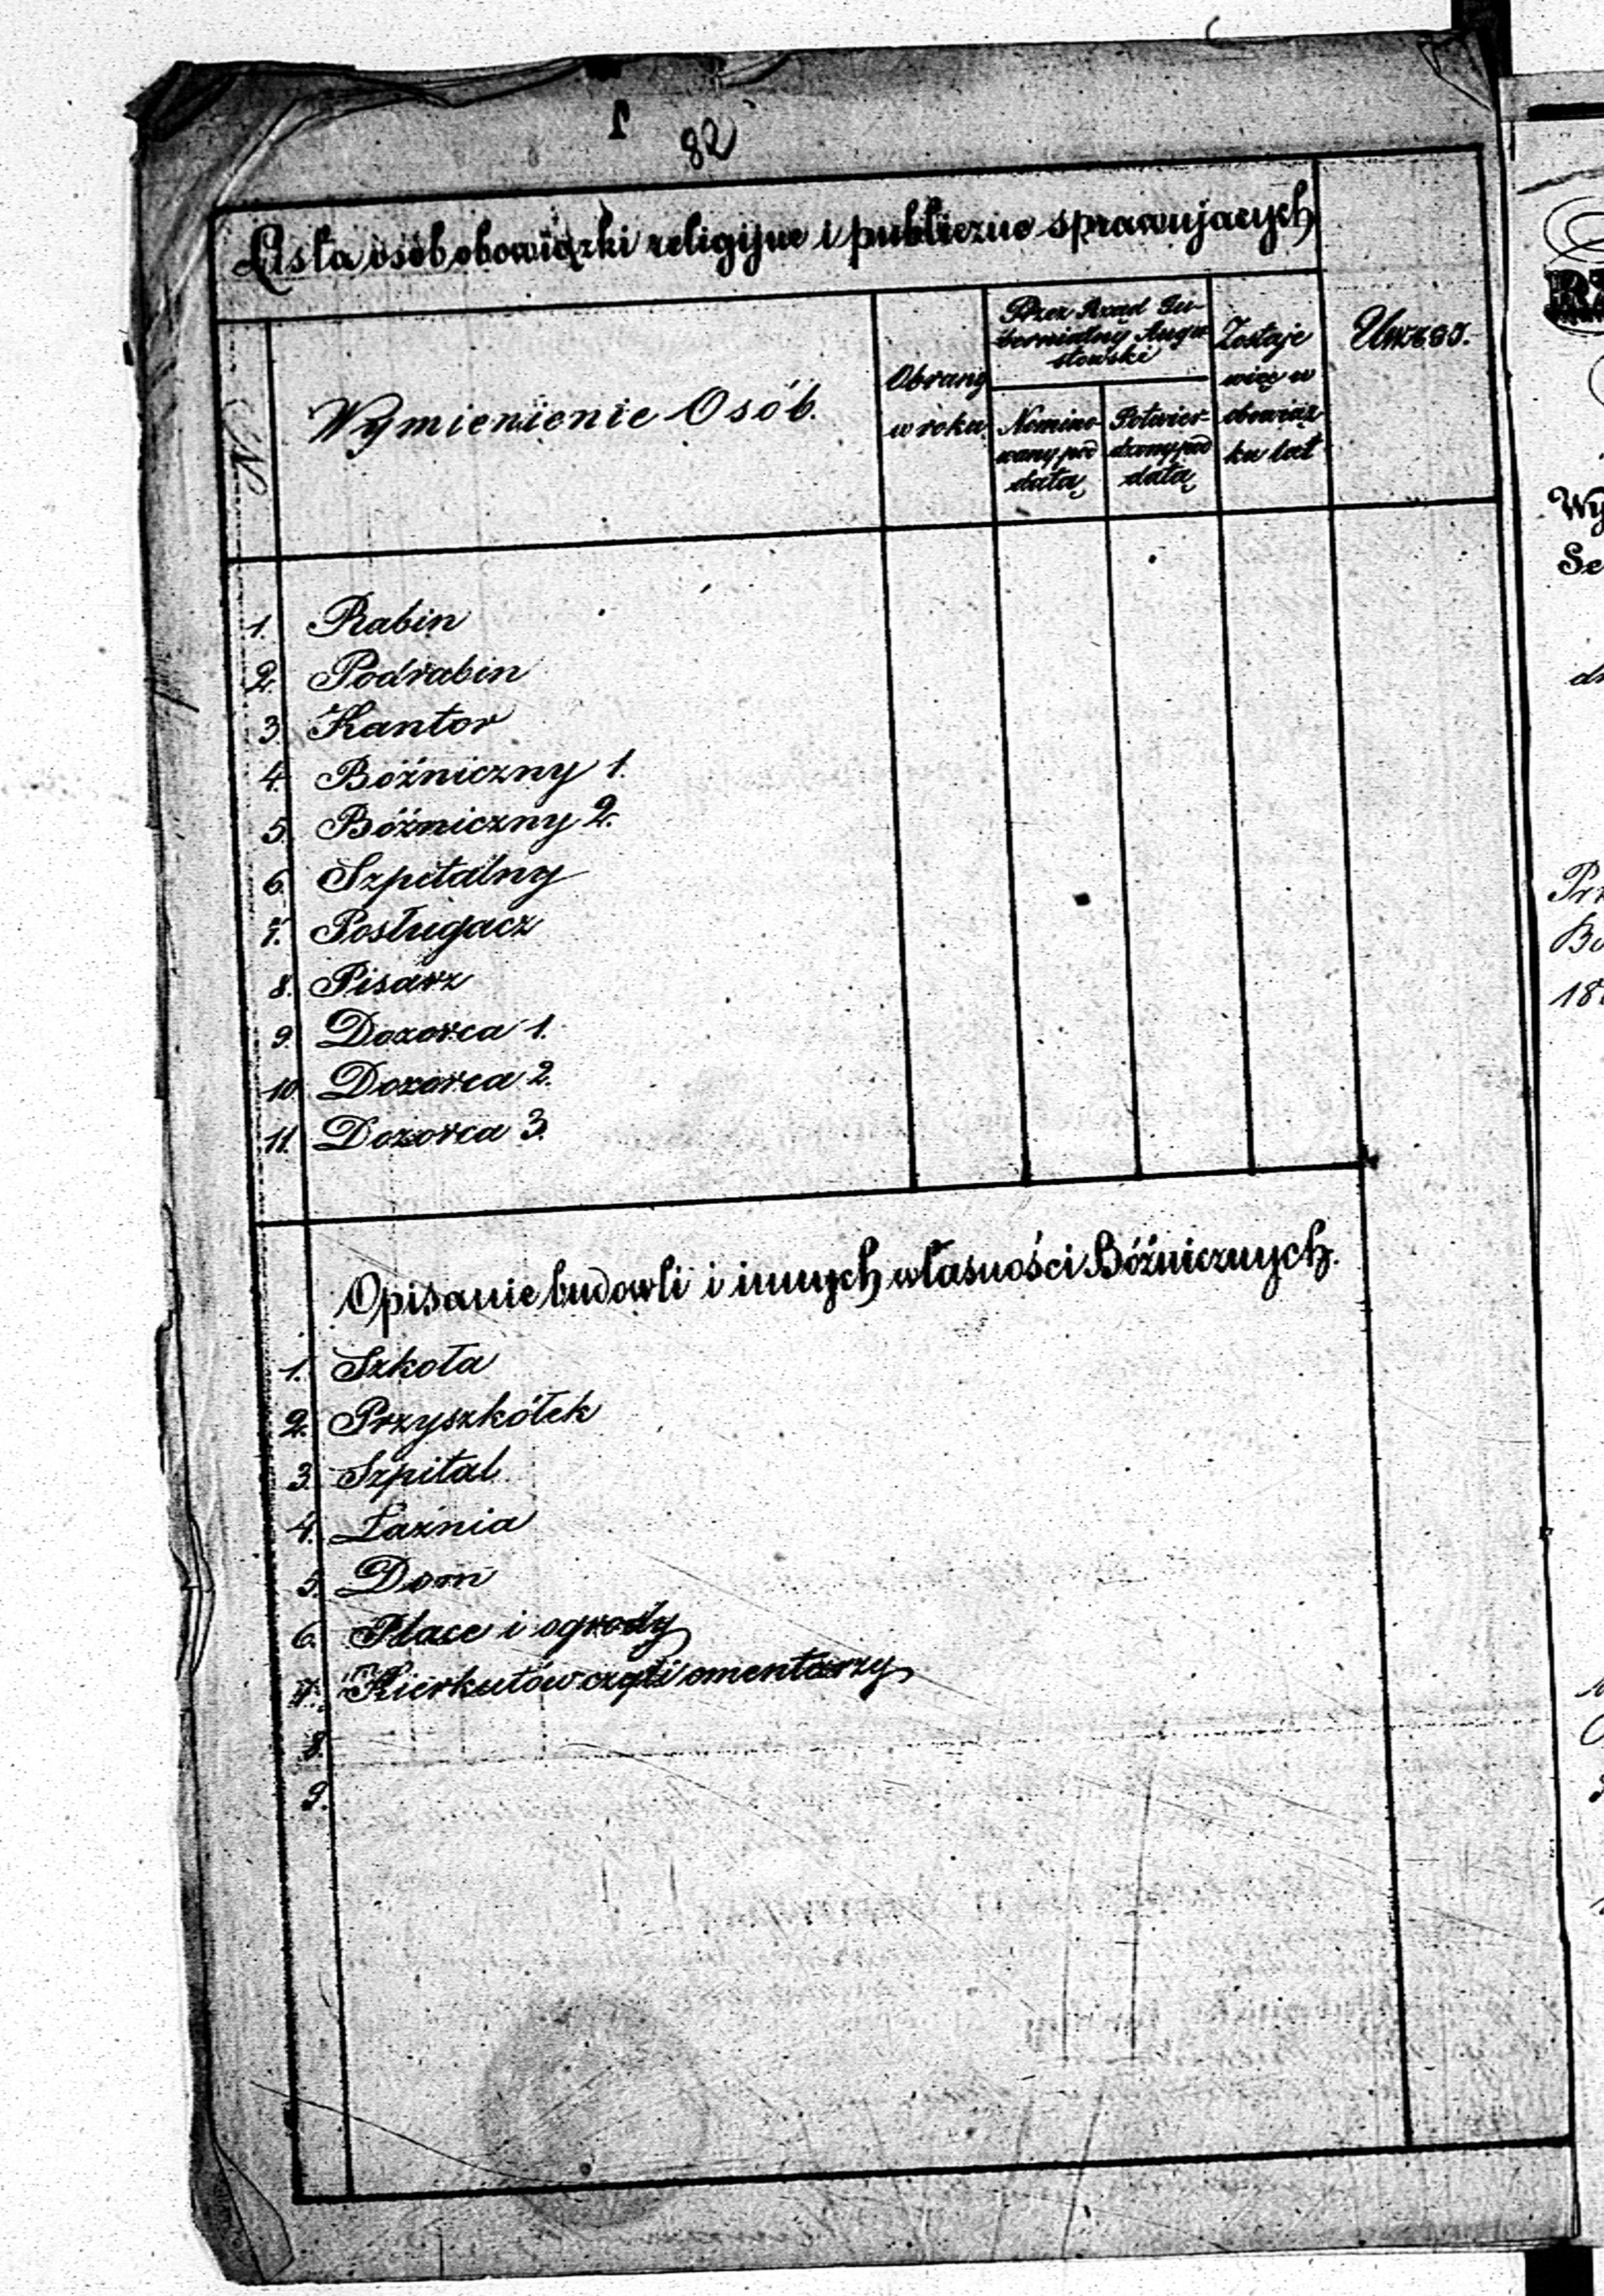 82
Lista osób obowiązki religijne i publiczne sprawujących
N
Wymienienie Osób.
Obrany
w roku
Przez Rząd Gu-
bernialny Augu-
stowski
Nomino-
wany pod
datą
Potwier-
dzony pod
datą
Zostaje
więc w
obowiąz-
ku lat
Uwagi.
1. Rabin
2. Podrabin
3. Kantor
4. Bóźniczny 1.
5. Bóźniczny 2.
6. Szpitalny
7. Posługacz
8. Pisarz
9. Dozorca 1.
10. Dozorca 2.
11. Dozorca 3.
Opisanie budowli i innych własności Bóźnicznych.
1. Szkoła
2. Przyszkółek
3. Szpital
4. Łaźnia
5. Dom
6. Place i ogrody
7. Kierkutów czyli cmentarzy
8.
9.